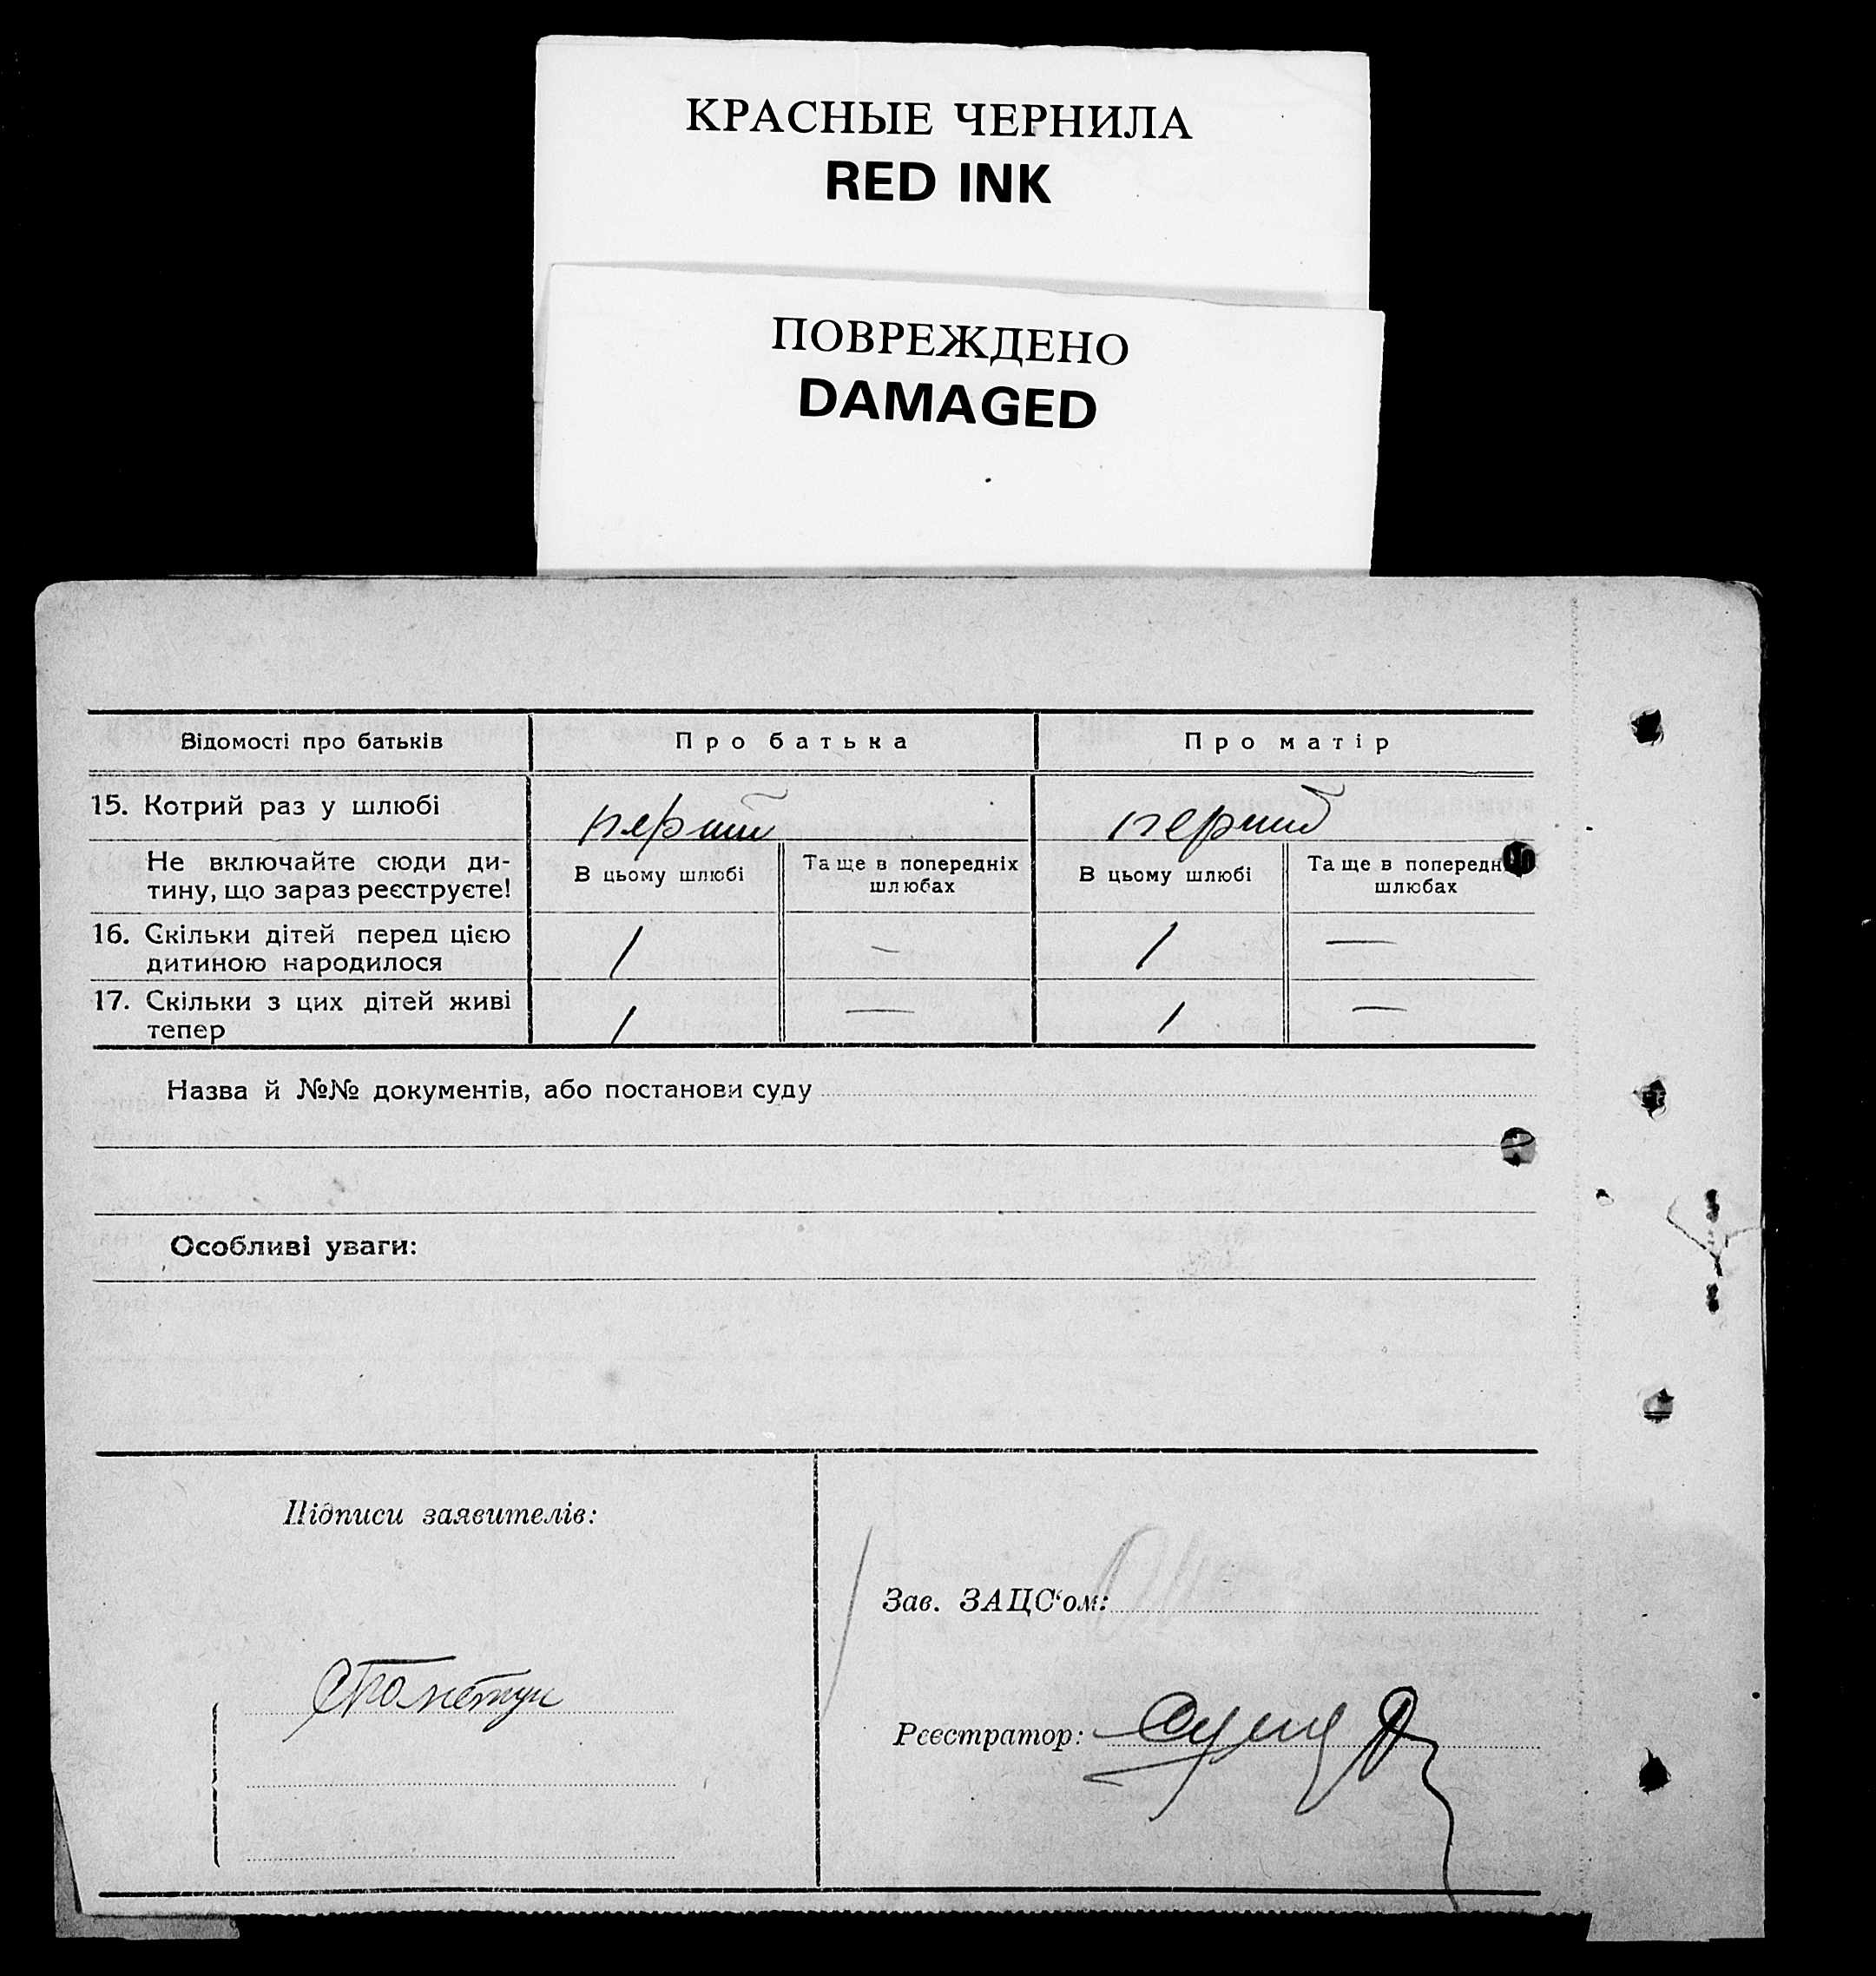 КРАСНЫЕ ЧЕРНИЛА
RED INK
ПОВРЕЖДЕНО
DAMAGED
Відомості про батьків Про батька Про матір
15. Котрий раз у шлюбі перший перший
Не включайте сюди ди-
тину, що зараз реєструєте!
В цьому шлюбі
Та ще в попередніх
шлюбах
В цьому шлюбі
Та ще в попередн
шлюбах
16. Скільки дітей перед цією
дитиною народилося
1 — 1 —
17. Скільки з цих дітей живі
тепер
1 — 1 —
Назва й №№ документів, або постанови суду
Особливі уваги:
Підписи заявителів:
Зав. ЗАЦС‘ом:
Реєстратор: